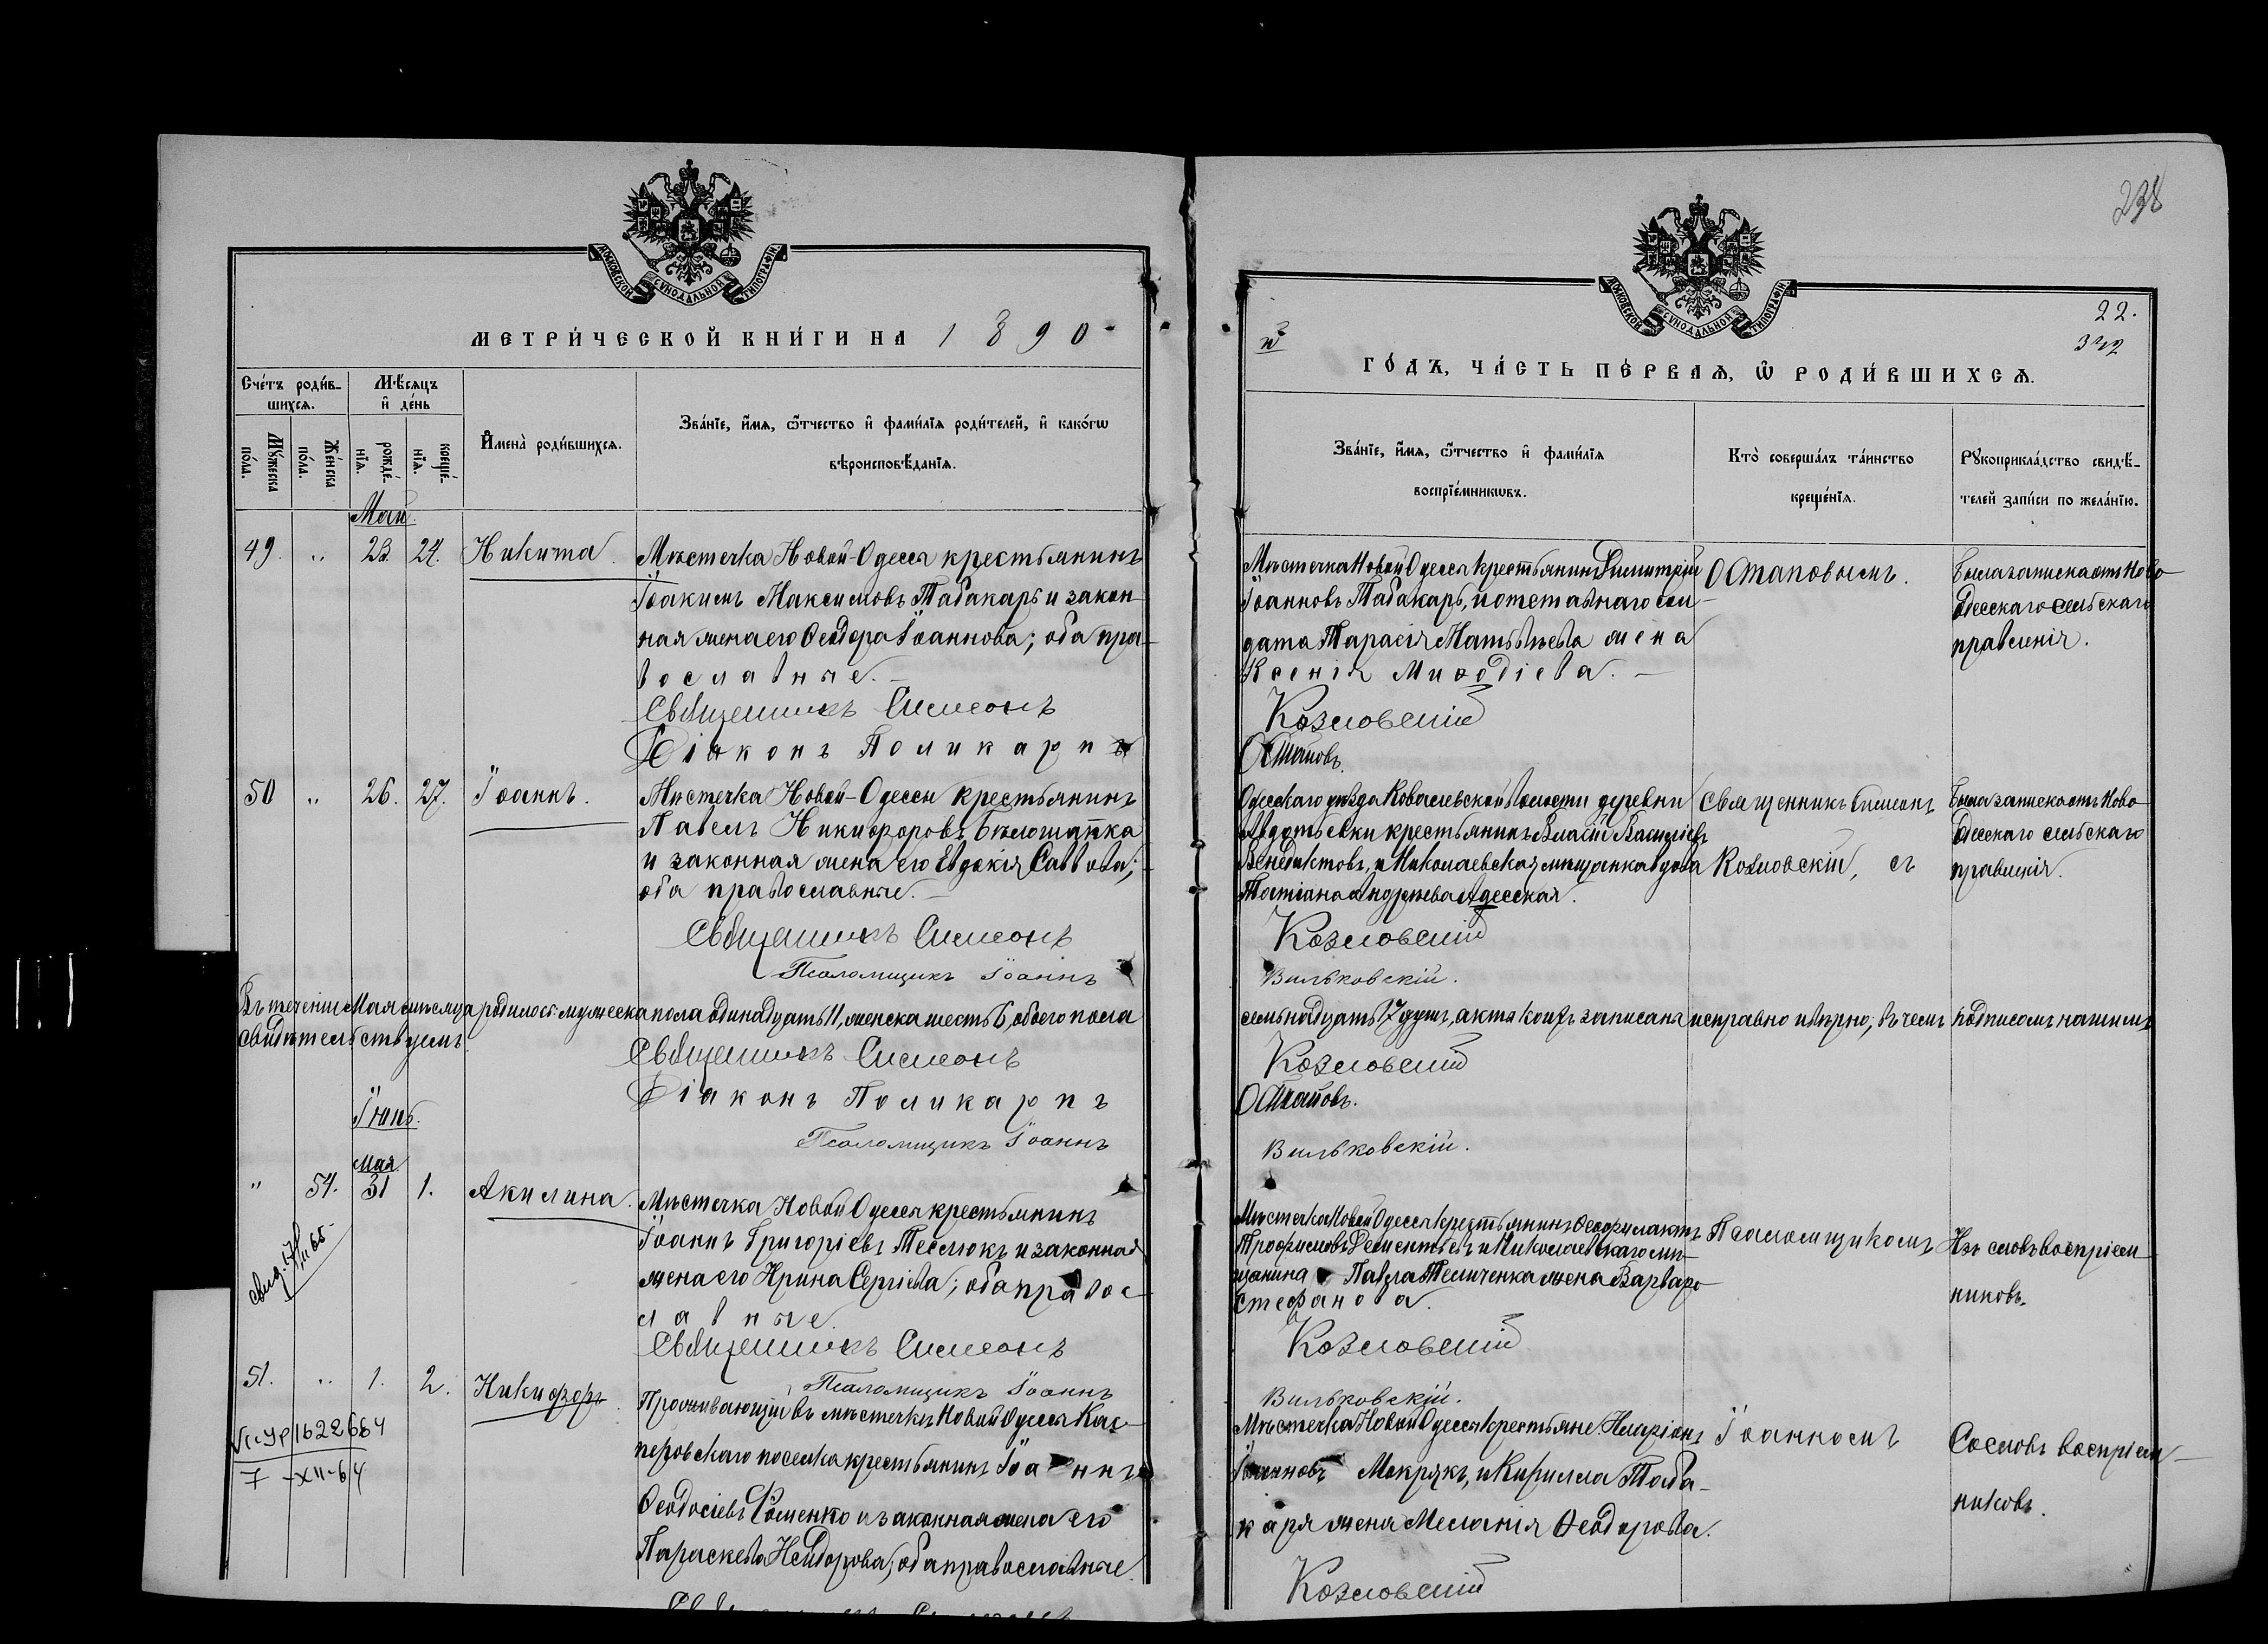 МОСКОВСКОЙ СѴНОДАЛЬНОЙ ТѴПОГРАФІИ
МЕТРИ́ЧЕСКОЙ КНИ́ГИ НА 1890
Сче́тъ роди́в-
шихсѧ.
Мѣ́сѧцъ
и҆ де́нь
Мꙋ́жеска
по́ла.
Же́нска
по́ла.
рожде́-
нїѧ.
креще́-
нїѧ.
И҆мена̀ роди́вшихсѧ.
Зва́нїе, и҆́мѧ, ѿтчество и҆ фами́лїѧ роди́телей, и҆ како́гѡ
вѣроисповѣ́данїѧ.
Май.
49. " 23. 24. Никита.
Мѣстечка Новой-Одессы крестьянинъ
Іоакимъ Максимовъ Табакарь и закон-
ная жена его Ѳеодора Іоаннова; оба пра-
вославные.
Священникъ Симеонъ
Діаконъ Поликарпъ
50 " 26. 27. Іоаннъ.
Мѣстечка Новой-Одессы крестьянинъ
Павелъ Никифоровъ Бѣлошапка
и законная жена его Евдокія Саввова;
оба православные.
Священникъ Симеонъ
Псаломщикъ Іоаннъ
Въ теченіе Мая мѣсяца родилось мужеска пола одинадцать 11, женска шесть 6, обоего пола
свидѣтельствуемъ.
Священникъ Симеонъ
Діаконъ Поликарпъ
Псаломщикъ Іоаннъ
Іюнь.
мая
" 54. 31 1. Акилина.
Мѣстечка Новой Одессы крестьянинъ
Іоаннъ Григоріевъ Теслюкъ и законная
жена его Ирина Сергіева; оба правос-
лавные.
Священникъ Симеонъ
Псаломщикъ Іоаннъ
51. " 1. 2. Никифоръ.
Проживающій въ мѣстечкѣ Новой Одессы Кас-
перовскаго поселка крестьянинъ Іоаннъ
Ѳеодосіевъ Фоменко и законная жена его
Параскева Исидорова; оба православные.
1622664
7-XII-64
238
22.
МОСКОВСКОЙ СѴНОДАЛЬНОЙ ТѴПОГРАФІИ
ГО́ДЪ, ЧА́СТЬ ПЕ́РВАѦ, Ѡ҆ РОДИ́ВШИХСѦ.
Зва́нїе, и҆́мѧ, ѿтчество и҆ фами́лїѧ
воспрїе́мникѡвъ.
Кто̀ соверша́лъ та́инство
креще́нїѧ.
Рꙋкоприкла́дство свидѣ́-
телей за́писи по жела́нїю.
Мѣстечка Новой Одессы крестьянинъ Димитрій
Іоанновъ Табакарь, и отставнаго сол-
дата Тарасія Матвѣева жена
Ксенія Миѳодіева.
Остаповымъ.
Была записка отъ Ново-
одесскаго сельскаго
правленія.
Козловскій
Остаповъ.
Одесскаго уѣзда Ковалевской волости деревни
Авдотьевки крестьянинъ Власій Василіевъ
Венедиктовъ, и Николаевская мѣщанка вдова
Татіана Андреева Адесская.
Священникъ Симеонъ
Козловскій, съ
Была записка отъ Ново
одесскаго сельскаго
правленія.
Козловскій
Вильковскій.
семьнадцать 17 душъ, акты коихъ записаны исправно и вѣрно; въ чемъ подписомъ нашимъ
Козловскій
Остаповъ.
Вильковскій.
Мѣстечка Новой Одессы крестьянинъ Ѳеофилактъ
Трофимовъ Дементьевъ и Николаевскаго мѣ-
щанина Павла Темиченка жена Варвара
Стефанова.
Псаломщикомъ
Изъ словъ воспріем-
никовъ.
Козловскій
Вильковскій.
Мѣстечка Новой Одессы крестьяне: Иларіонъ
Іоанновъ Мокрякъ, и Кирилла Таба-
каря жена Меланія Ѳеодорова.
Іоанномъ
Со словъ воспріем-
никовъ.
Козловскій